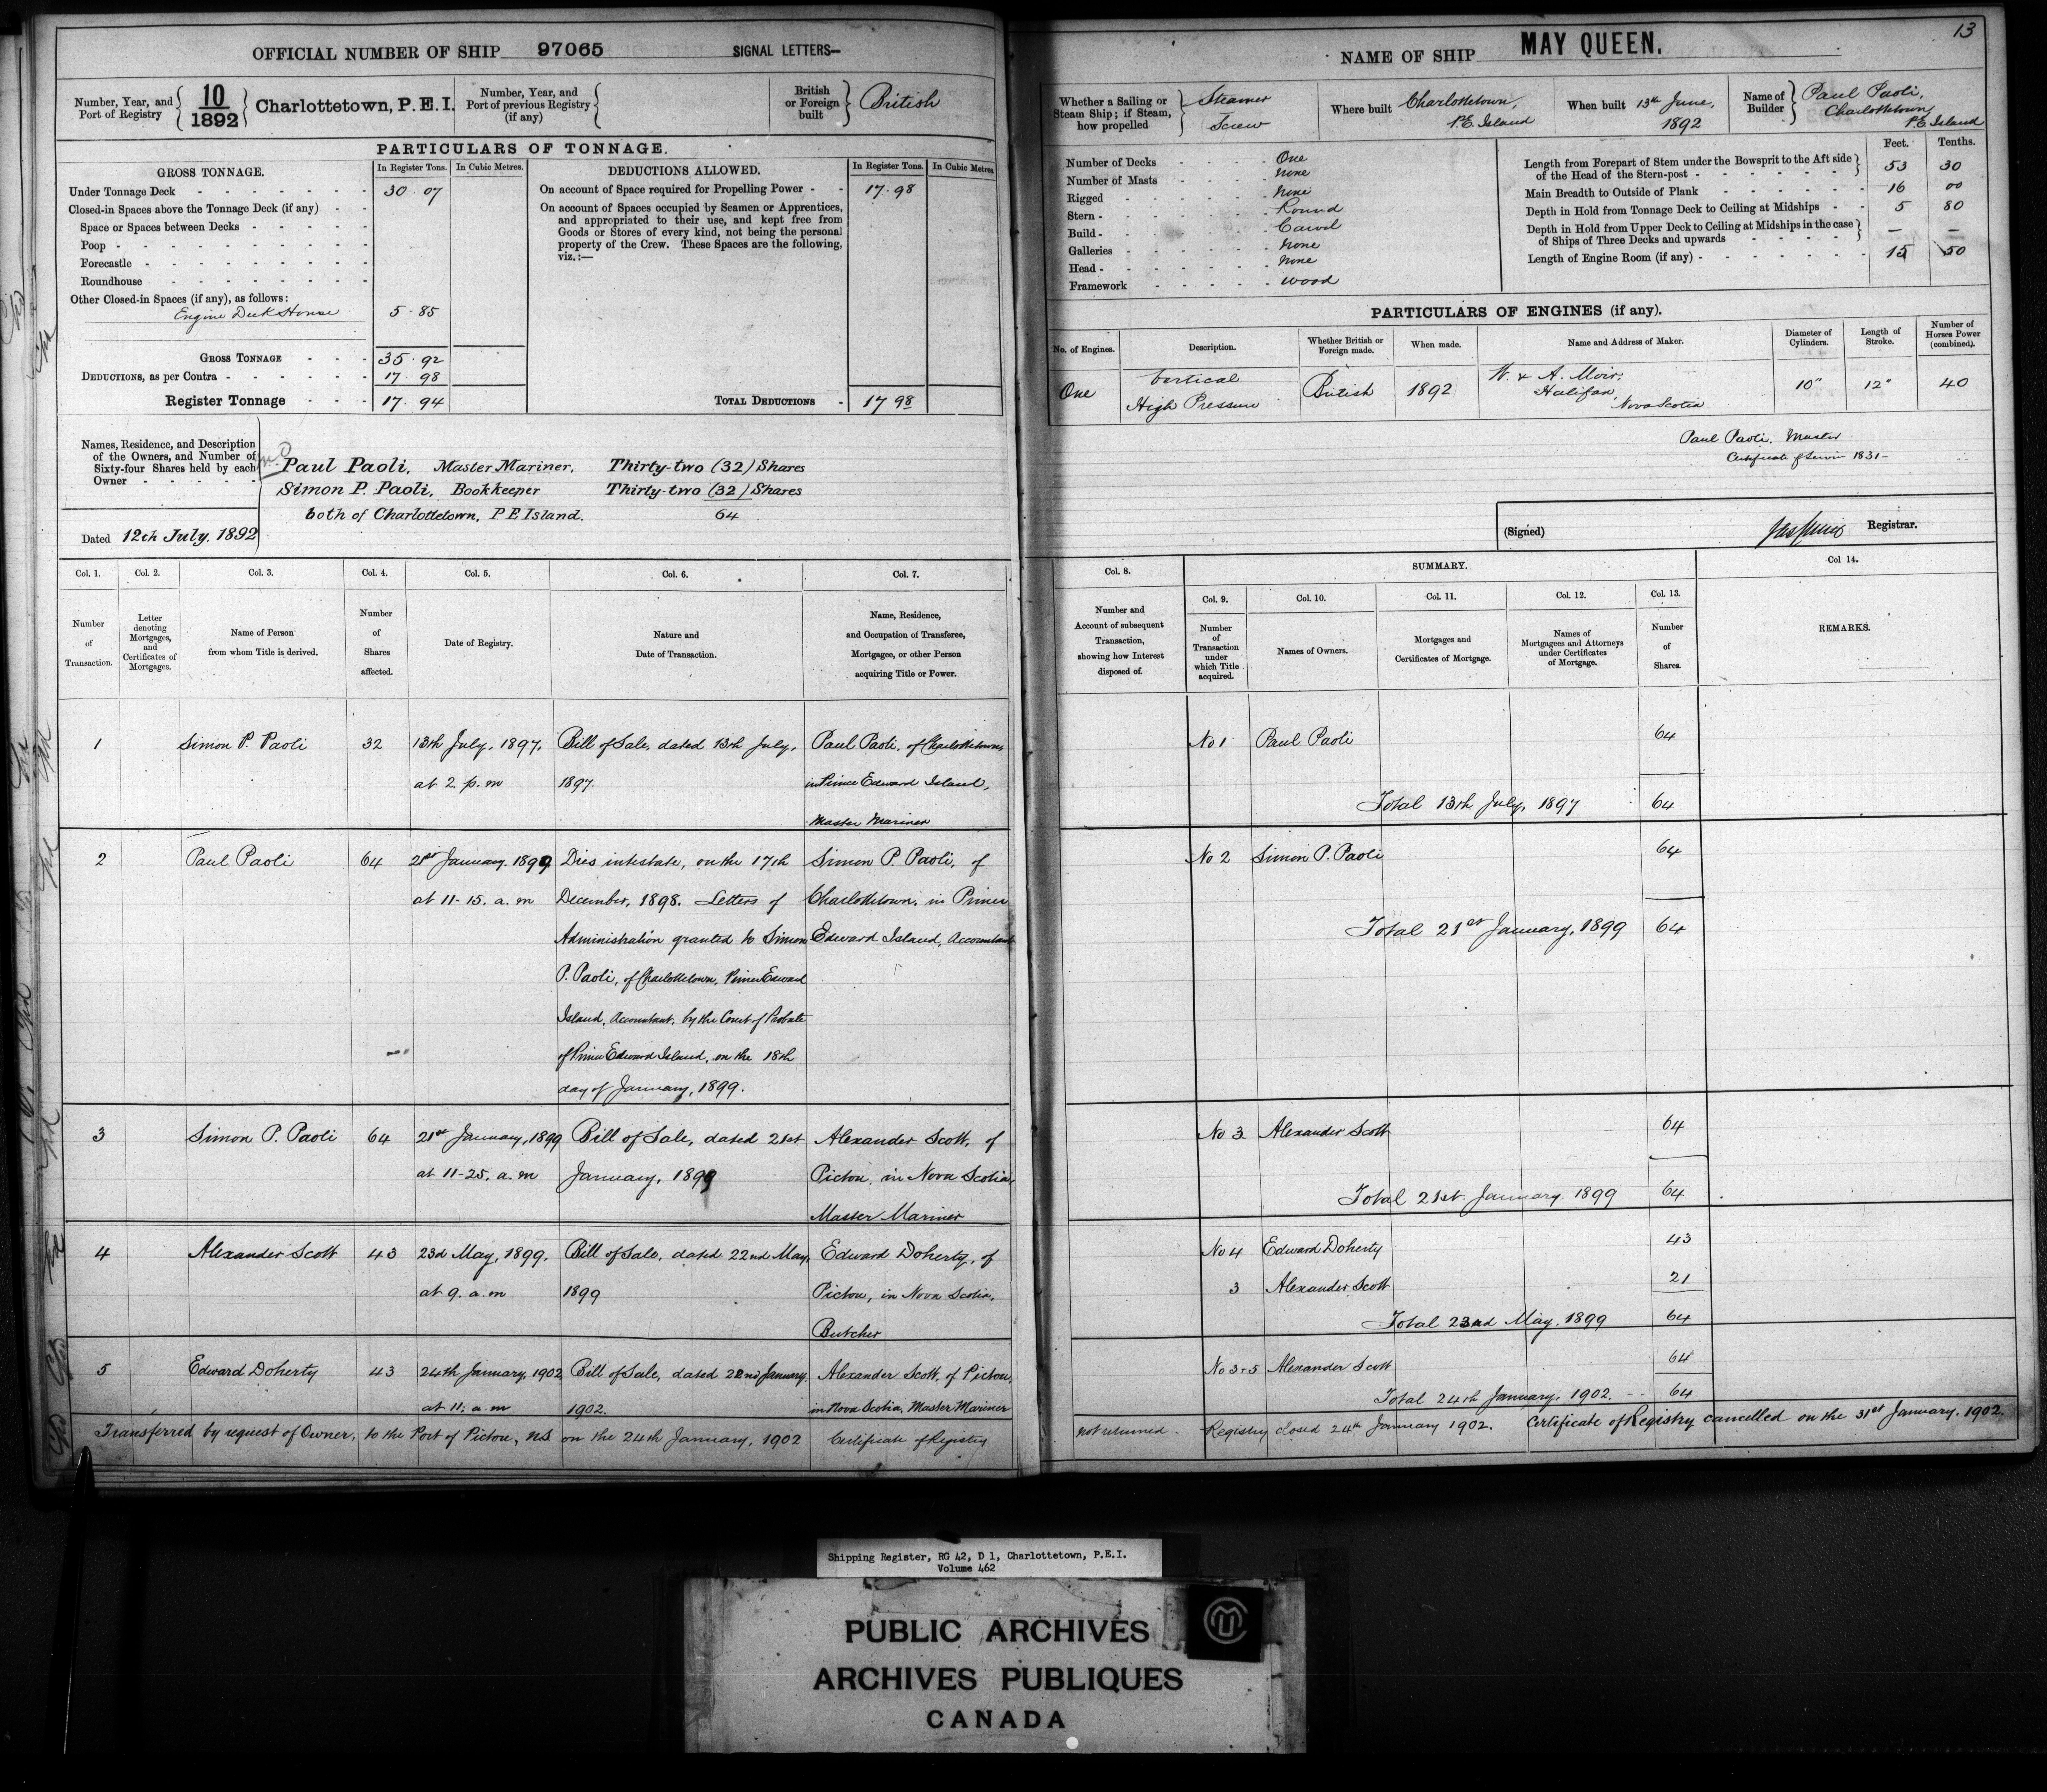 13
OFFICIAL NUMBER OF SHIP 97065 SIGNAL LETTERS—
Number, Year, and Port of Registry
10
1892
Charlottetown, P.E.I.
Number, Year, and Port of previous Registry (if any)
British or Foreign built
British
PARTICULARS OF TONNAGE.
GROSS TONNAGE. In Register Tons. In Cubic Metres.
Under Tonnage Deck 30.07
Closed-in Spaces above the Tonnage Deck (if any)
Space or Spaces between Decks
Poop
Forecastle
Roundhouse
Other Closed-in Spaces (if any), as follows:
Engine Deck House 5.85
GROSS TONNAGE 35.92
DEDUCTIONS, as per Contra 17.98
Register Tonnage 17.94
DEDUCTIONS ALLOWED. In Register Tons. In Cubic Metres.
On account of Space required for Propelling Power 17.98
On account of Spaces occupied by Seamen or Apprentices,
and appropriated to their use, and kept free from
Goods or Stores of every kind, not being the personal
property of the Crew. These Spaces are the following,
viz.:—
TOTAL DEDUCTIONS 17 98
Names, Residence, and Description
of the Owners, and Number of
Sixty-four Shares held by each
Owner
Paul Paoli, Master Mariner, Thirty-two (32) Shares
Simon P. Paoli, Bookkeeper Thirty-two (32) Shares
both of Charlottetown, P E Island. 64
Dated 12th July, 1892
NAME OF SHIP MAY QUEEN.
Whether a Sailing or
Steam Ship; if Steam,
how propelled
Steamer
Screw
Where built Charlottetown,
P.E. Island
When built 13th June,
1892
Name of Builder
Paul Paoli,
Charlottetown
P.E. Island
Number of Decks One
Number of Masts None
Rigged None
Stern Round
Build Carvel
Galleries None
Head None
Framework Wood
Feet. Tenths.
Length from Forepart of Stem under the Bowsprit to the Aft side
of the Head of the Stern-post 53 30
Main Breadth to Outside of Plank 16 00
Depth in Hold from Tonnage Deck to Ceiling at Midships 5 80
Depth in Hold from Upper Deck to Ceiling at Midships in the case
of Ships of Three Decks and upwards — —
Length of Engine Room (if any) 15 50
PARTICULARS OF ENGINES (if any).
No. of Engines. Description. Whether British or Foreign made. When made. Name and Address of Maker. Diameter of Cylinders. Length of Stroke. Number of Horses Power (combined).
One Vertical High Pressure British 1892 W. & A. Moir, Halifax, Nova Scotia 10" 12" 40
Paul Paoli, Master
Certificate of Servic 1831-
(Signed) Registrar.
Col. 1. Col. 2. Col. 3. Col. 4. Col. 5. Col. 6. Col. 7.
Number of Transaction.
Letter denoting Mortgages, and Certificates of Mortgages.
Name of Person from whom Title is derived.
Number of Shares affected.
Date of Registry.
Nature and Date of Transaction.
Name, Residence, and Occupation of Transferee, Mortgagee, or other Person acquiring Title or Power.
Col. 8. SUMMARY. Col 14.
Col. 9. Col. 10. Col. 11. Col. 12. Col. 13.
Number and Account of subsequent Transaction, showing how Interest disposed of.
Number of Transaction under which Title acquired.
Names of Owners.
Mortgages and Certificates of Mortgage.
Names of Mortgagees and Attorneys under Certificates of Mortgage.
Number of Shares.
REMARKS.
1 Simon P. Paoli 32 13th July, 1897, Bill of Sale, dated 13th July, Paul Paoli, of Charlottetown,
at 2 p.m 1897. in Prince Edward Island,
Master Mariner
No 1 Paul Paoli 64
Total 13th July, 1897 64
2 Paul Paoli 64 21st January, 1899 Dies intestate, on the 17th Simon P. Paoli, of
at 11-15. a.m December, 1898. Letters of Charlottetown, in Prince
Administration granted to Simon Edward Island, Accountant
P. Paoli, of Charlottetown, Prince Edward
Island, Accountant, by the Court of Probate
of Prince Edward Island, on the 18th
day of January, 1899.
No 2 Simon P. Paoli 64
Total 21st January, 1899 64
3 Simon P. Paoli 64 21st January, 1899 Bill of Sale, dated 21st Alexander Scott, of
at 11-25. a.m January, 1899 Pictou, in Nova Scotia,
Master Mariner
No 3 Alexander Scott 64
Total 21st January 1899 64
4 Alexander Scott 43 23d May, 1899. Bill of Sale, dated 22nd May, Edward Doherty, of
at 9. a.m 1899 Pictou, in Nova Scotia,
Butcher
No 4 Edward Doherty 43
3 Alexander Scott 21
Total 23nd May, 1899 64
5 Edward Doherty 43 24th January, 1902 Bill of Sale, dated 22nd January, Alexander Scott, of Pictou,
at 11. a.m 1902. in Nova Scotia, Master Mariner
No 3+5 Alexander Scott 64
Total 24th January, 1902. 64
Transferred by request of Owner, to the Port of Pictou, NS on the 24th January, 1902 Certificate of Registry
not returned. Registry closed 24th January 1902. Certificate of Registry cancelled on the 31st January, 1902.
Shipping Register, RG 42, D 1, Charlottetown, P.E.I.
Volume 462
PUBLIC ARCHIVES
ARCHIVES PUBLIQUES
CANADA